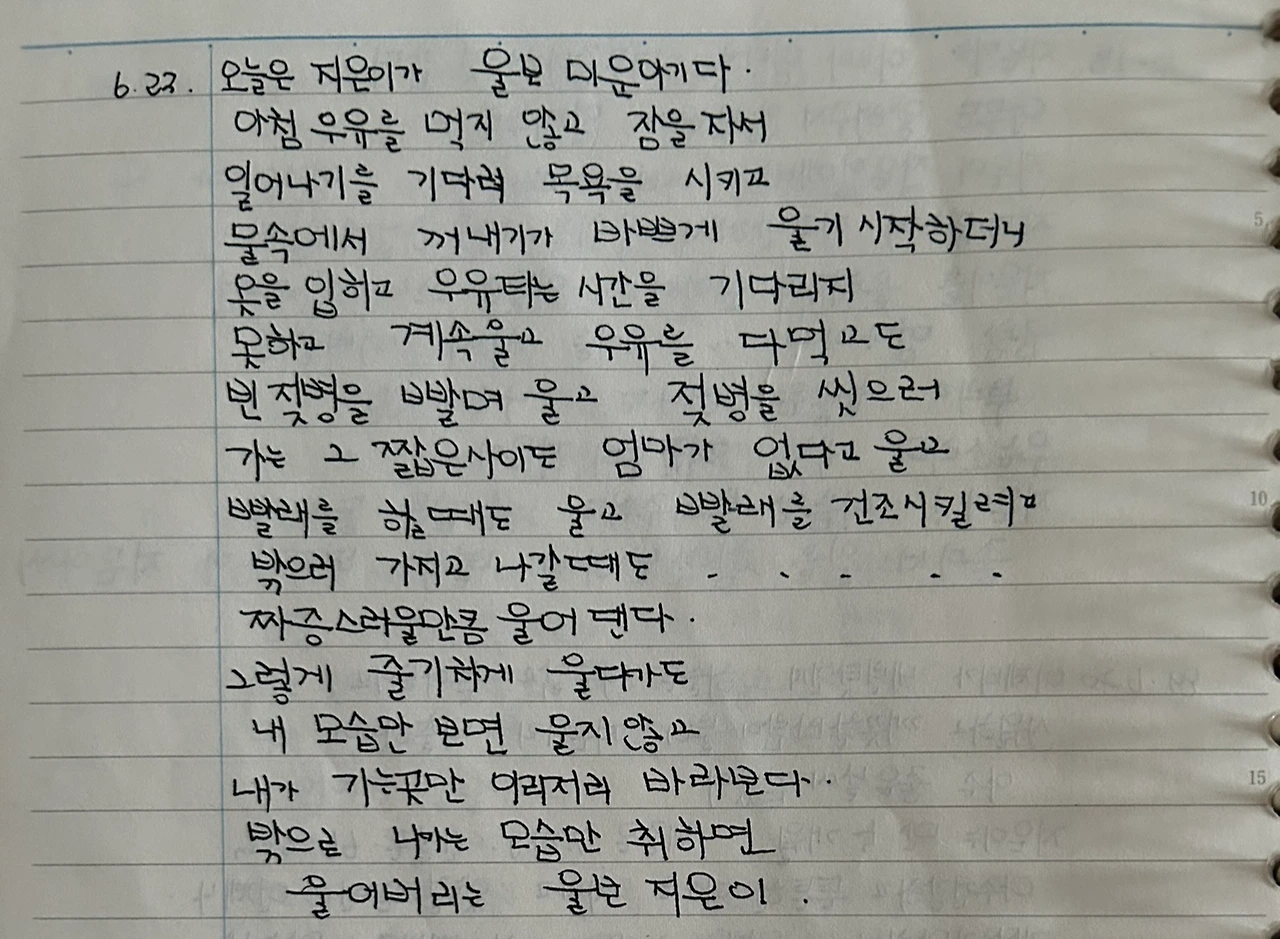 6.23. 오늘은 지은이가 울보 미운아기다.
아침 우유를 먹지 않고 잠을 자서
일어나기를 기다려 목욕을 시키고
물속에서 꺼내기가 바쁘게 울기 시작하더니
옷을 입히고 우유타는 시간을 기다리지
못하고 계속울고 우유를 다먹고도
빈 젖병을 빨며 울고 젖병을 씻으러
가는 그 짧은사이도 엄마가 없다고 울고
빨래를 할때도 울고 빨래를 건조시킬려고
밖으러 가지고 나갈때도 . . . . .
짜증스러울만큼 울어 댄다.
그렇게 줄기차게 울다가도
내 모습만 보면 울지않고
내가 가는곳만 이리저리 바라본다.
밖으로 나가는 모습만 취하면
울어버리는 울보 지은이.